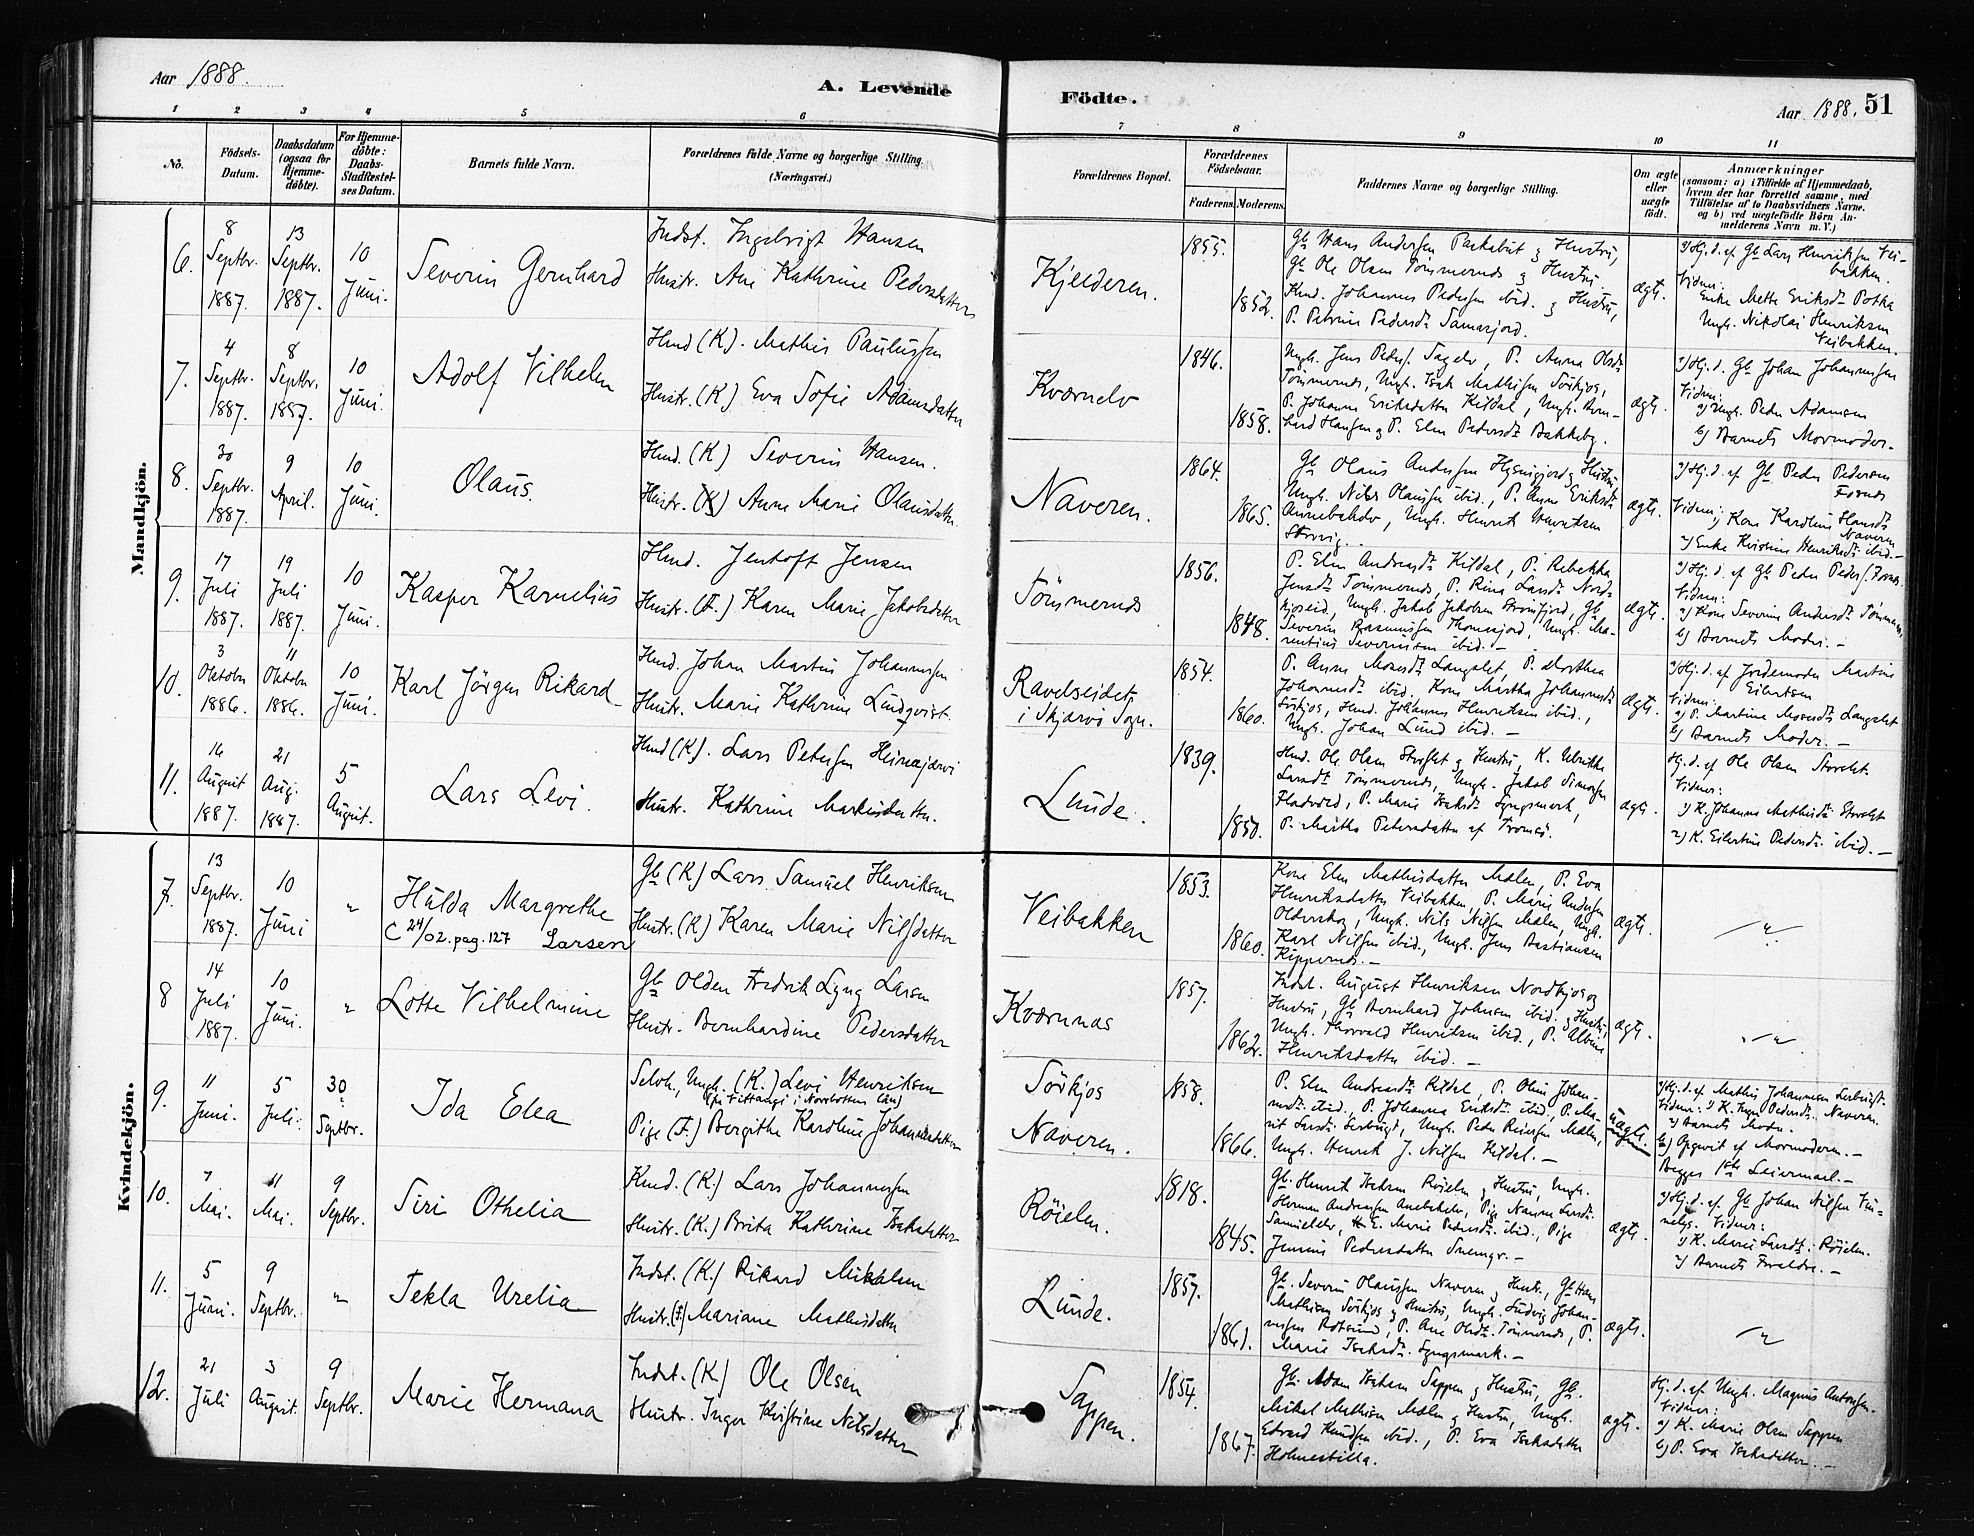 Aar 1888.
A. Levende Födte.
Aar 1888. 51
1 2 3 4 5 6 7 8 9 10 11
No.
Födsels-Datum.
Daabsdatum (ogsaa for Hjemme-döbte).
For Hjemme-döbte: Daabs-Stadfæstel-ses Datum.
Barnets fulde Navn.
Forældrenes fulde Navne og borgerlige Stilling. (Næringsvei.)
Forældrenes Bopæl.
Forældrenes Födselsaar.
Faderens. Moderens.
Faddernes Navne og borgerlige Stilling.
Om ægte eller uægte födt.
Anmærkninger
(saasom: a) i Tilfælde af Hjemmedaab, hvem der har forrettet samme, med Tilföielse af to Daabsvidners Navne. og b) ved uægtefödte Börn An-melderens Navn m. V.)
Mandkjön.
6. 8 Septbr. 1887. 13 Septbr. 1887. 10 Juni.
Severin Gernhard
Indst. Ingebrigt Hansen
Hustr. Ane Kathrine Pedersdatter
Kjelderen.
1855. 1852.
Gb Hans Andersen & Hustru,
Gb Ole Olsen Tömmernes & Hustru
Hmd. Johannes Pedersen ibid. & Hustru,
P. Petrine Pedersdt Samasjord.
ægt.
a) Hj. d. af Gb Lars Henriksen Vei-
bakken.
Vidner:
Enke Mette Eriksdt
Ungk. Nikolai Henriksen
Veibakken.
7. 4 Septbr. 1887. 8 Septbr. 1887. 10 Juni.
Adolf Vilhelm
Hmd (K). Mathis Paulussen
Hustr. (K) Eva Sofie Adamsdatter
Kvœnelv
1846. 1858.
Ungk. Jens Peders. Sagelv, P. Anna Olsdt
Tömmernes, Ungk. Isak Mathisen Sörkjos,
P. Johanna Eriksdatter Kildal, Ungk. Bern-
hard Hansen & P. Elen Pedersdt Bakkeby.
ægt.
a) Hj. d. Gb Johan Johannesen
Vidner:
a) Ungk. Peder Adamsen
b) Barnets Mormoder.
8. 30 Septbr. 1887. 9 April. 10 Juni.
Olaus.
Hmd. (K) Severin Hansen.
Hustr. (K) Anne Marie Olausdatter
Naveren.
1864. 1865.
Gb Olaus Andersen & Hustru,
Ungk. Nils Olaussen ibid., P. Anne Eriksdt
Ungk. Henrik
Storvig.
ægt.
a) Hj. d. af Gb Peder Pedersen
Vidner:
1) Kone Karoline Hansdt
Naveren
2) Enke Henriksdt ibid.
9. 17 Juli 1887. 19 Juli 1887. 10 Juni.
Kasper Karnelius
Hmd. Jentoft Jensen
Hustr. (F.) Karen Marie Jakobsdatter
Tömmernes
1856. 1848.
P. Elen Andreasdt Kildal, P. Rebekka
Jensdt Tömmernes, P. Rina Larsdt Nord-
kjoseid, Ungk. Jakob Jakobsen Strömfjord, Gb
Severin Rasmussen Thomasjord, Ungk. Ma-
rentius Severinsen ibid. —
ægt.
a) Hj. d. af Gb Peder Peders.
Vidner:
a) Kone Severine Andersdt Tömmern.
b) Barnets Moder. —
10. 3 Oktober 1886. 11 Oktober 1886. 10 Juni.
Karl Jörgen Rikard
Hmd. Johan Martin Johannessen
Hustr. Marie Kathrine Lindqvist.
Ravelseidet,
i Skjærvö Sogn.
1854. 1860.
P. Anne Mosesdt Langslet, P. Marthea
Johannesdt ibid., Kone Martha Johannesdt
Sörkjos, Hmd. Johannes Henriksen ibid.,
Ungk. Johan Lund ibid. —
ægt.
a) Hj. d. af Jordemoder Martine
Eilertsen
Vidner:
a) P. Martine Mosesdt Langslet
b) Barnets Moder. —
11. 16 August 1887. 21 Aug. 1887. 5 August.
Lars Levi.
Hmd (K). Lars Petersen Heinajärvi
Hustr. Kathrine Markusdatter.
Lunde.
1839. 1850.
Hmd. Ole Olsen Storslet & Hustru, K. Ulrikke
Larsdt Tömmernes, Ungk. Jakob Simonsen
Fladvold, P. Marie Isaksdt Lyngsmark,
P. Martha Petersdatter af Tromsö.
ægt.
Hj. d. af Ole Olsen Storslet.
Vidner:
1) K. Johanna Mathisdt Storslet
2) K. Eilertine Pedersdt ibid. —
Kvindekjön.
7. 13 Septbr. 1887. 10 Juni "
Hulda Margrethe
C 24/02. pag. 127 Larsen
Gb (K) Lars Samuel Henriksen
Hustr. (K) Karen Marie Nilsdatter
Veibakken
1853. 1860.
Kone Elen Mathisdatter Mælen, P. Eva
Henriksdatter Veibakken, P. Marie Andersen
Olderskog, Ungk. Nils Nilsen Mælen, Ungk.
Karl Nilsen ibid., Ungk. Jens Bastiansen
ægt.
"
8 14 Juli 1887. 10 Juni. "
Lotte Vilhelmine
Gb Olden Fredrik Lyng Larsen
Hustr. Bernhardine Pedersdatter
Kvœnnæs
1857. 1862.
Indst. August Henriksen Nordkjos og
Hustru, Gb Bernhard Johnsen ibid. & Hustru,
Ungk. Thorvald Henriksen ibid., P. Albine
Henriksdatter ibid. —
ægt.
"
9. 11 Juni. 5 Juli. 30 Septbr.
Ida Elea
Selvh., Ungk. (K.) Levi Henriksen
(fr Vittangi i Norrbotten län)
Pige (F.) Bergithe Karoline Johannesdatter
Sörkjos
Naveren.
1858. 1866.
P. Elen Andreasdt Kildal, P. Oline Johan-
nesdt ibid., P. Johanna Eriksdt ibid., P. Ma-
rit Larsdt, Ungk. Peder Reiersen Mælen,
Ungk. Henrik J. Nilsen Kildal. —
uægt.
a) Hj. d. af Mathis Johannesen
Vidner: 1) K. Pedersdt Naveren.
2) Barnets Moder.
b) Opgivet af Mormoderen. —
Begges 1ste Leiermaal. —
10. 7 Mai. 11 Mai. 9 Septbr.
Siri Othelia
Kmd. (K.) Lars Johannessen
Hustr. (K.) Brita Kathrine Isaksdatter
Röielen.
1818. 1845.
Gb. Henrik Isaksen Röielen & Hustru, Ungk.
Herman Andreasen, Pige Nanna Larsdt
Samuelelv, H. E. Marie Pedersdt ibid., Pige
Jensine Pedersdatter
ægt.
a) Hj. d. af Gb Johan Nilsen
Vidner:
1) K. Marie Larsdt Röielen.
2) Barnets Forældre. —
11. 5 Juni. 9 Septbr. "
Tekla Urelia
Indst. (K.) Rikard Mikkelsen
Hustr. (F) Mariane Mathisdatter
Lunde.
1857. 1861.
Gb. Severin Olaussen Naveren & Hustr., Gb Hans
Mathisen Sörkjos & Hustru, Ungk. Ludvig Johan-
nesen Rotsund, P. Ane Olsdt Tömmernes, P.
Marie Isaksdt Lyngsmark. —
ægt.
"
12. 21 Juli 3 August. 9 Septbr.
Marie Hermana
Indst. (K) Ole Olsen
Hustr. Inger Kristine Nilsdatter
Sappen.
1854. 1867.
Gb. Adam Isaksen Sappen & Hustru, Gb.
Mikal Mathisen Mælen & Hustru, Ungk.
Edvard Knudsen ibid., P. Eva Isaksdatter
Holmestilla.
ægt.
Hj. d. af Ungk. Magnus Antonsen.
Vidner:
a) K. Marie Olsen Sappen
b) P. Eva Isaksdatter. —